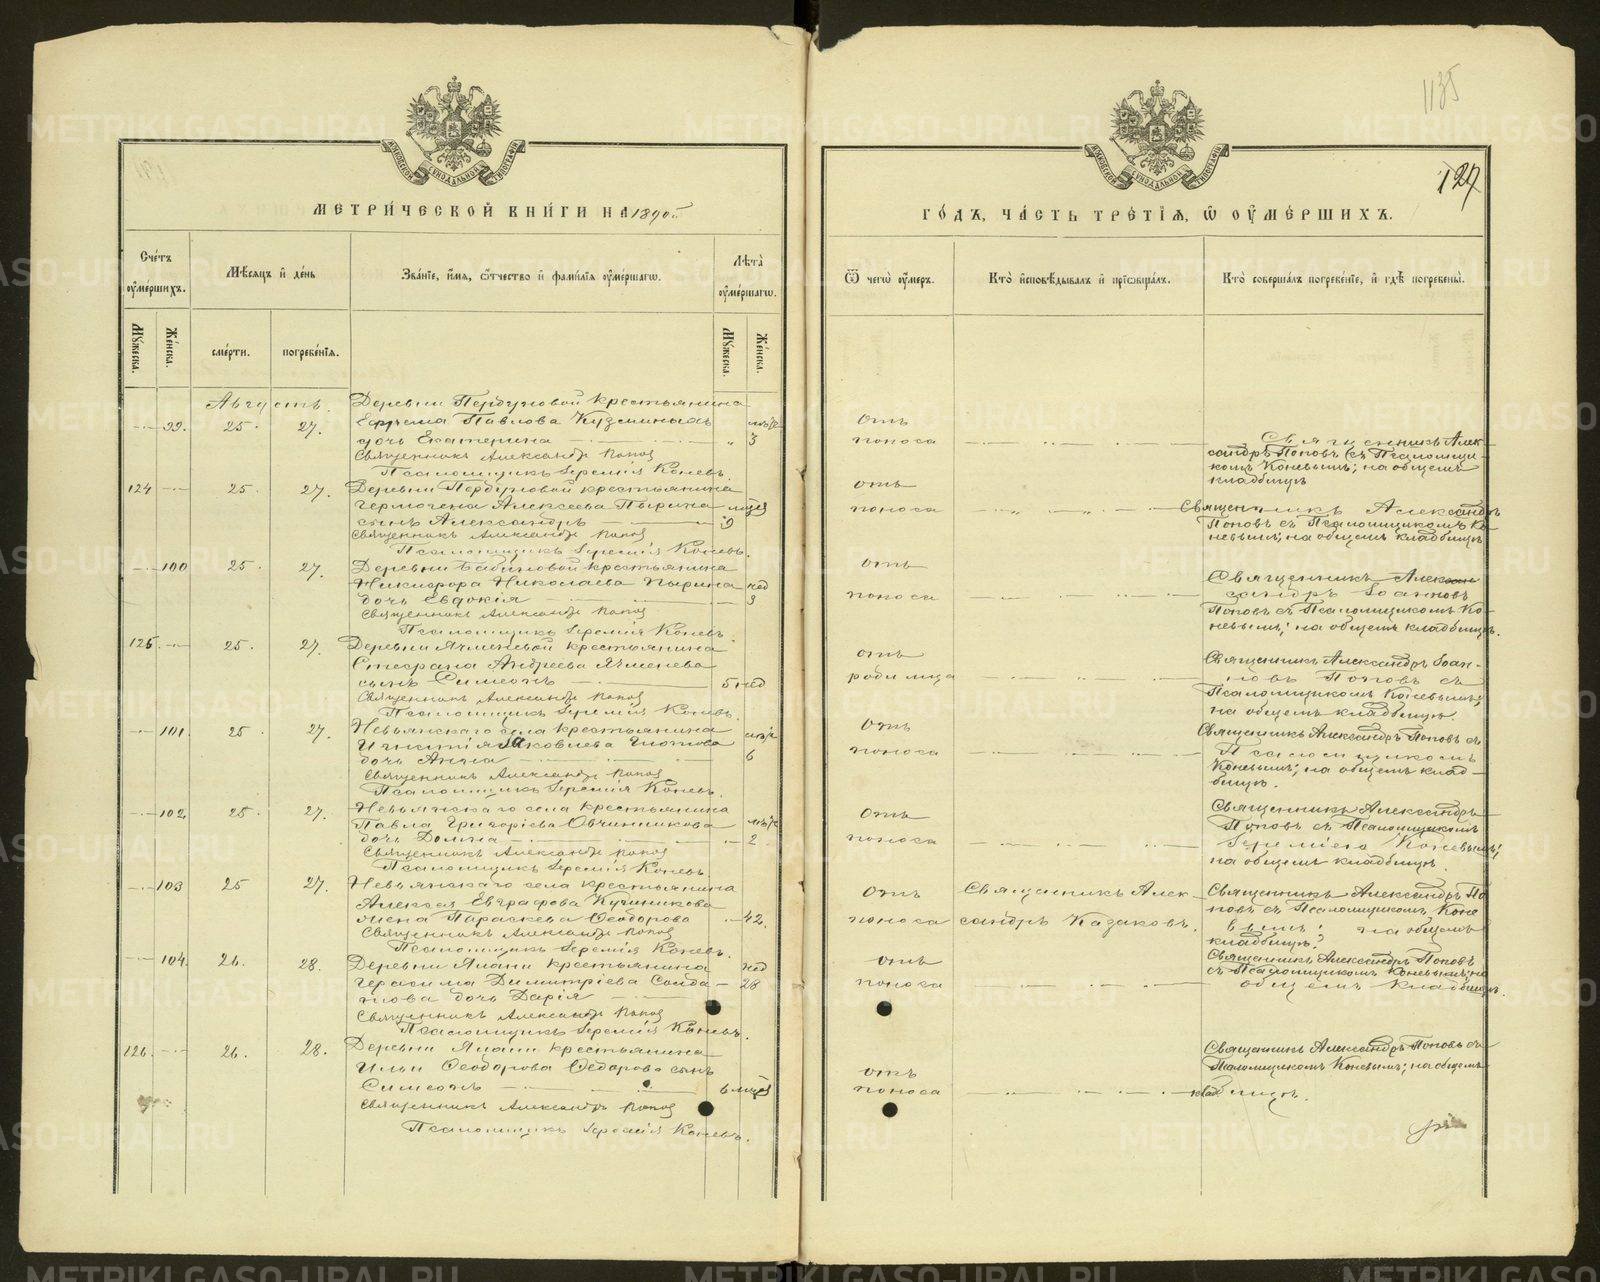 1135
127
МЕТРИ́ЧЕСКОЙ КНИ́ГИ НА 1890й
ГО́ДЪ, ЧА́СТЬ ТРЕ́ТІѦ, Ѡ ОУ҆МЕ́РШИХЪ.
Сче́тъ оу҆ме́ршихъ.
Мѣ́сѧцъ и҆ де́нь
Зва́нїе, и҆́мѧ, ѻ҆́тчество и҆ фами́лїѧ оу҆ме́ршагѡ.
Лѣта̀ оу҆ме́ршагѡ.
Ѿ чегѡ̀ оу҆́меръ.
Кто̀ и҆сповѣ́дывалъ и҆ прїѡбща́лъ.
Кто̀ соверша́лъ погребе́нїе, и҆ гдѣ̀ погребены̀.
Мꙋ́жеска.
Же́нска.
сме́рти.
погребе́нїѧ.
Мꙋ́жеска.
Же́нска.
Августъ.
Деревни Пердуновой крестьянина
99. 25. 27. Ефрема Павлова Кузминыхъ
дочь Екатерина 3
Священникъ Александръ Попов
Псаломщикъ Іеремія Коневъ
отъ
поноса
Священникъ Алек-
сандръ Поповъ съ Псаломщи-
комъ Коневымъ; на общемъ
кладбищѣ
124 25. 27. Деревни Пердуновой крестьянина
Гермогена Алексеева Пырина
сынъ Александръ 9
Священникъ Александръ Попов
Псаломщикъ Іеремія Коневъ.
отъ
поноса
Священникъ Александръ
Поповъ съ Псаломщикомъ Ко-
невымъ; на общемъ кладбищѣ
100 25. 27. Деревни Бабиновой крестьянина
Никифора Николаева Пырина нед
дочь Евдокія 3
Священникъ Александръ Попов
Псаломщикъ Іеремія Коневъ.
отъ
поноса
Священникъ Алек
сандръ Іоанновъ
Поповъ съ Псаломщикомъ Ко-
невымъ; на общемъ кладбищѣ.
125. 25. 27. Деревни Ячменевой крестьянина
Стефана Андреева Ячменева
сынъ Симеонъ 5 нед
Священникъ Александръ Попов
Псаломщикъ Іеремія Коневъ.
отъ
родимца
Священникъ Александръ Іоан-
новъ Поповъ съ
Псаломщикомъ Коневымъ;
на общемъ кладбищѣ.
101. 25. 27. Невьянскаго села крестьянина
Яковлева Глотова
дочь Анна 6
Священникъ Александръ Попов
Псаломщикъ Іеремія Коневъ.
отъ
поноса
Священникъ Александръ Поповъ съ
Псаломщикомъ
Коневымъ; на общемъ клад-
бищѣ.
102. 25. 27. Невьянскаго села крестьянина
Павла Григоріева Овчинникова
дочь Домна 2
Священникъ Александръ Попов
Псаломщикъ Іеремія Коневъ
отъ
поноса
Священникъ Александръ
Поповъ съ Псаломщикомъ
Іереміею Коневымъ;
на общемъ кладбищѣ.
103 25 27. Невьянскаго села крестьянина
Алексея Евграфова
жена Параскева Ѳеодорова 42.
Священникъ Александръ Попов
Псаломщикъ Іеремія Коневъ.
отъ
поноса
Священникъ Алек-
сандръ Казаковъ.
Священникъ Александръ По
повъ съ Псаломщикомъ Коне
вымъ; на общемъ
кладбищѣ.
104. 26. 28. Деревни Ялани крестьянина нед
Герасима Димитріева Солда- 28
това дочь Дарія
Священникъ Александръ Попов
Псаломщикъ Іеремія Коневъ.
отъ
поноса
Священникъ Александръ Поповъ
съ Псаломщикомъ Коневымъ; на
общемъ кладбищѣ.
126. 26. 28. Деревни Ялани крестьянина
Ильи Ѳеодорова Ѳедорова сынъ
Симеонъ 6
Священникъ Александръ Попов
Псаломщикъ Іеремія Коневъ.
отъ
поноса
Священникъ Александръ Поповъ съ
Псаломщикомъ Коневымъ; на общемъ
кладбищѣ.
METRIKI.GASO-URAL.RU